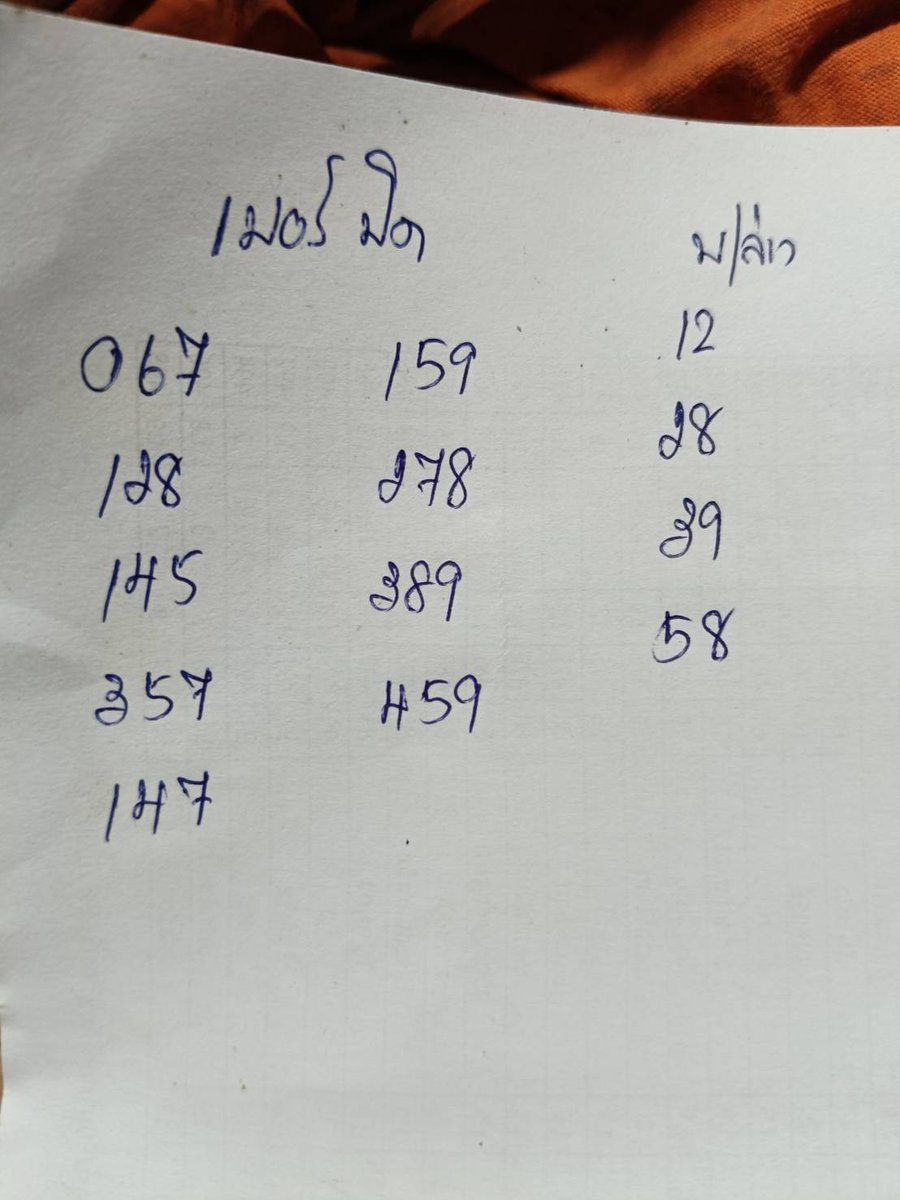 เบอร์ ปิด
บ/ล่าง
067 159 12
128 278 28
145 389 39
357 459 58
147